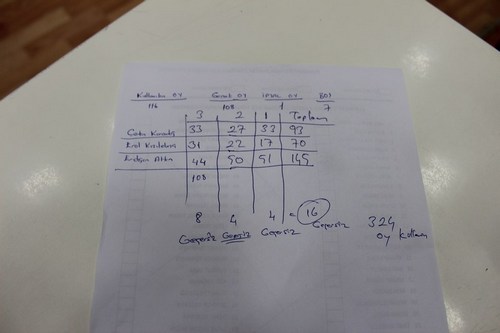 Kullanılan OY Geçerli OY İPTAL OY BOŞ
116 108 1 7
3 2 1 Toplam
33 27 33 93
31 22 17 70
44 50 51 145
108
8 4 4 = 16
Geçersiz Geçersiz Geçersiz Geçersiz
324
oy kullanı